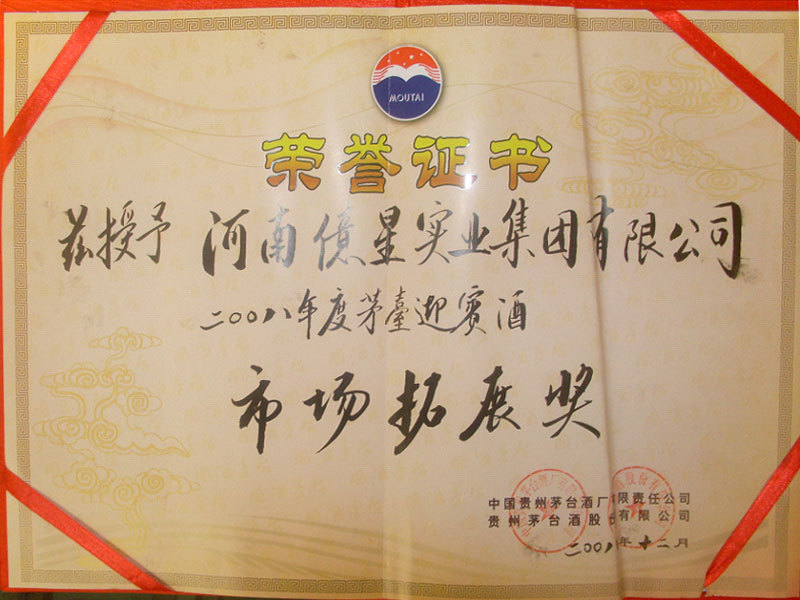 MOUTAI
荣誉证书
兹授予 河南億星实业集团有限公司
二〇〇八年度茅臺迎宾酒
市场拓展奖
中国贵州茅台酒厂有限责任公司
贵州茅台酒股份有限公司
二〇〇八年十二月